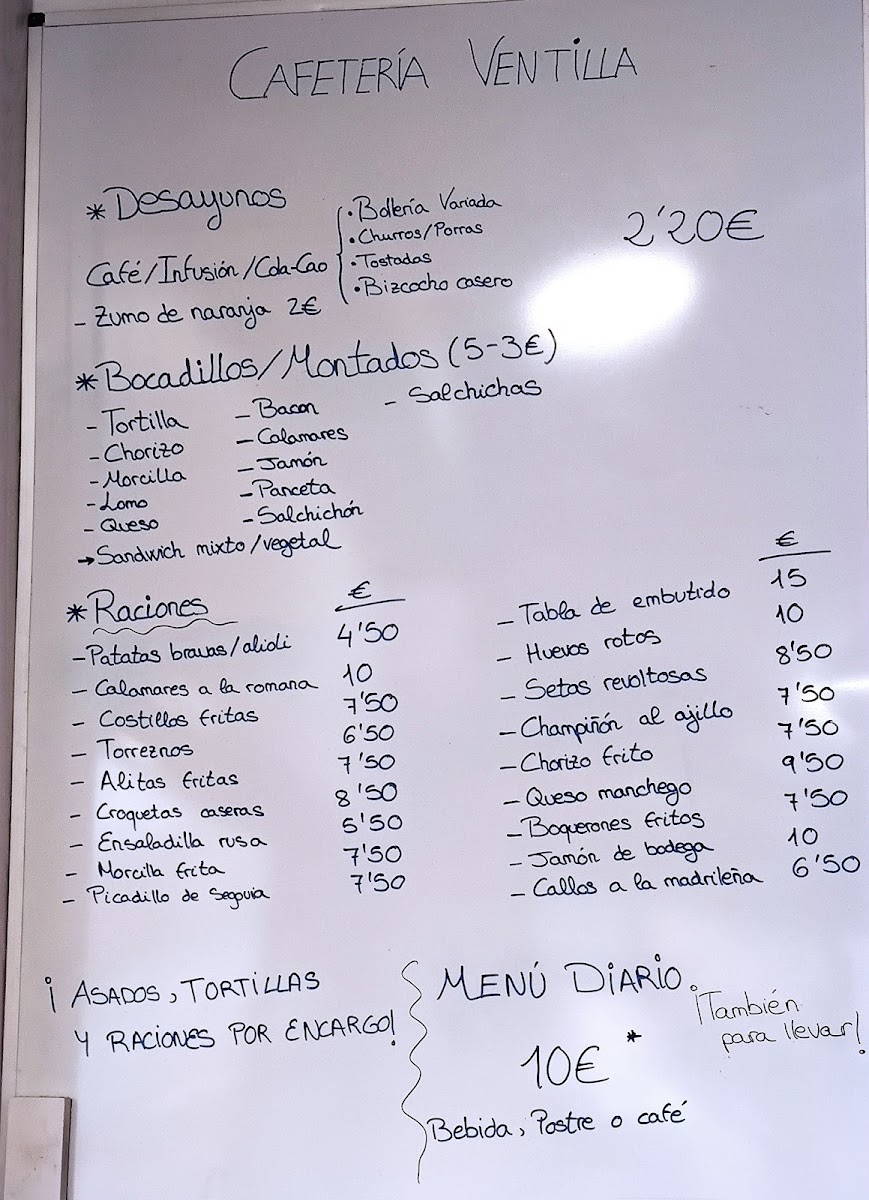 CAFETERÍA VENTILLA
* Desayunos
Café/Infusión/Cola-Cao
• Bollería Variada
• Churros/Porras
• Tostadas
• Bizcocho casero
2'20€
- Zumo de naranja 2€
* Bocadillos/Montados (5-3€)
- Tortilla
- Chorizo
- Morcilla
- Lomo
- Queso
- Bacon
- Calamares
- Jamón
- Panceta
- Salchichón
- Salchichas
→ Sandwich mixto/vegetal
* Raciones €
- Patatas bravas/alioli 4'50
- Calamares a la romana 10
- Costillas fritas 7'50
- Torreznos 6'50
- Alitas fritas 7'50
- Croquetas caseras 8'50
- Ensaladilla rusa 5'50
- Morcilla frita 7'50
- Picadillo de Segovia 7'50
€
- Tabla de embutido 15
- Huevos rotos 10
- Setas revoltosas 8'50
- Champiñón al ajillo 7'50
- Chorizo frito 7'50
- Queso manchego 9'50
- Boquerones fritos 7'50
- Jamón de bodega 10
- Callos a la madrileña 6'50
¡ASADOS, TORTILLAS
Y RACIONES POR ENCARGO!
MENÚ DIARIO.
10€ *
Bebida, Postre o café
¡También
para llevar!